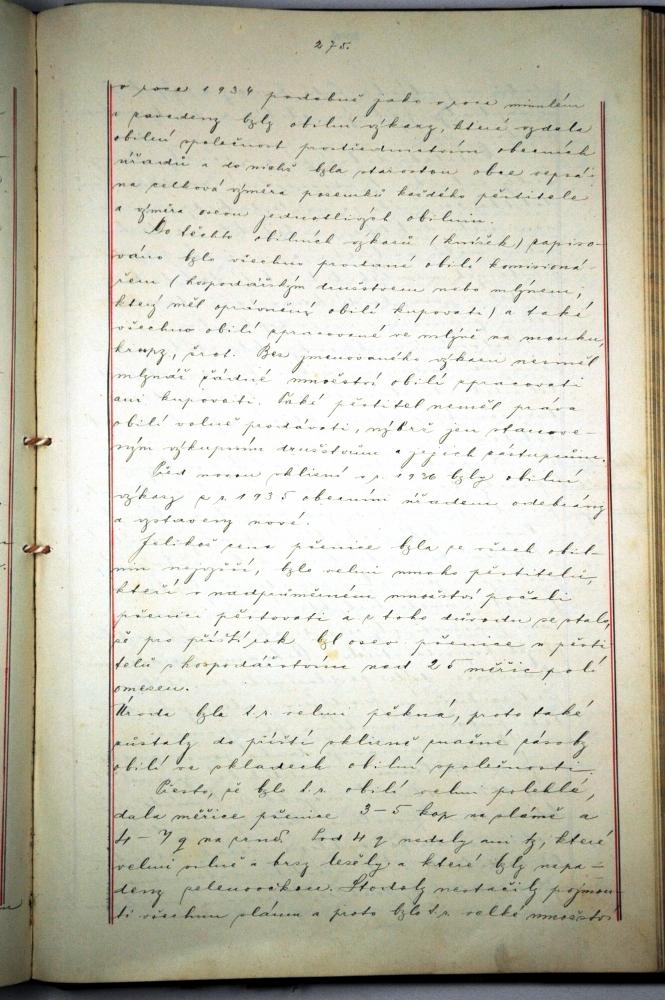 275.
v roce 1934 podobně jako v roce minulém
zavedeny byly obilní výkazy, které vydala
obilní společnost prostřednictvím obecních
úřadů a do nichž byla starostou obce vepsá-
na celková výměra pozemků každého pěstitele
a výměra osevu jednotlivých obilnin.
Do těchto obilních výkazů (knížek) zapiso-
váno bylo všechno prodané obilí komisioná-
řem (hospodářským družstvem nebo mlýnem,
který měl oprávnění obilí kupovati) a také
všechno obilí zpracované ve mlýně na mouku,
krupy, šrot. Bez jmenovaného výkazu nesměl
mlynář žádné množství obilí zpracovati
ani kupovati. Také pěstitel neměl práva
obilí volně prodávati, nýbrž jen stanove-
ným výkupním družstvům a jejich zástupcům.
Před novou sklizní v r. 1936 byly obilní
výkazy z r. 1935 obecním úřadem odebrány
a vystaveny nové.
Jelikož cena pšenice byla ze všech obil-
nin nejvyšší, bylo velmi mnoho pěstitelů,
kteří v nadprůměrném množství počali
pšenici pěstovati a z toho důvodu se stalo,
že pro příští rok byl osev pšenice u pěsti
telů s hospodářstvím nad 25 měřic polí
omezen.
Úroda byla t.r. velmi pěkná, proto také
zůstaly do příští sklizně značné zásoby
obilí ve skladech obilní společnosti.
Přesto, že bylo t.r. obilí velmi polehlé,
dala měřice pšenice 3–5 kop na slámě a
4–7 q na zrně. Pod 4 q nedaly ani ty, které
velmi silně a brzy ležely a které byly napa-
deny zelenoočkou. Stodoly nestačily pojmou-
ti všechnu slámu a proto bylo t.r. velké množství